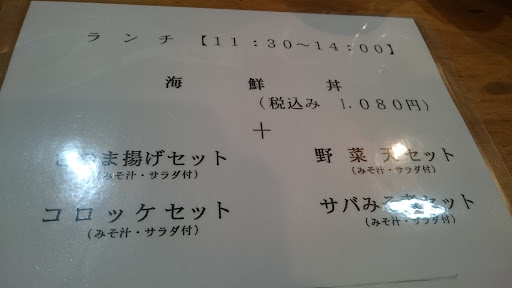 ランチ 【11:30～14:00】
海鮮丼
(税込み 1,080円)
＋
ま揚げセット 野菜天セット
(みそ汁・サラダ付) (みそ汁・サラダ付)
コロッケセット サバみそ セット
(みそ汁・サラダ付) (みそ汁・サラダ付)